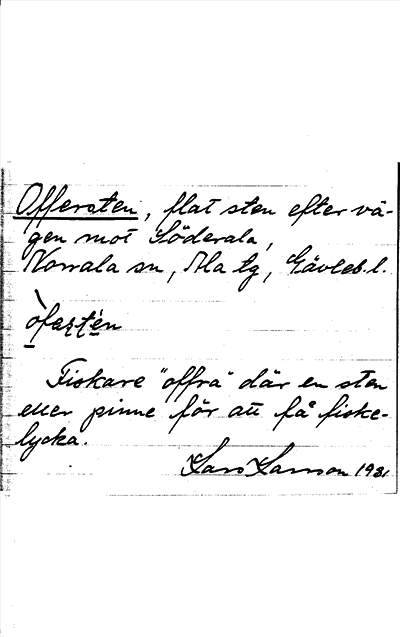 Offersten, flat sten efter vä-
gen mot Söderala,
Norrala sn, Ala tg, Gävleb. l.
Fiskare "offra" där en sten
eller pinne för att få fiske-
lycka.
Lars Larsson 1931